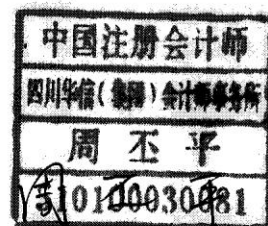 中国注册会计师
四川华信(集团)会计师事务所
周丕平
510100030081